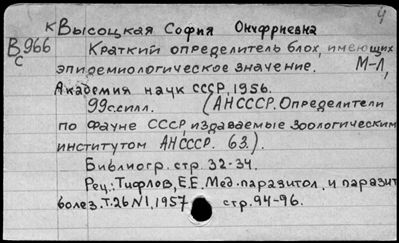 4
к Высоцкая София Онуфриевна
В 966
с
Краткий определитель блох, имеющих
эпидемиологическое значение. М-Л,
Академия наук СССР, 1956.
99с.илл. (АНСССР. Определители
по фауне СССР, издаваемые Зоологическим
институтом АНСССР. 63.).
Библиогр. стр. 32-34.
Рец.: Тифлов, Е.Е. Мед. паразитол. и паразит
болез. Т.26 N1, 1957 стр. 94-96.